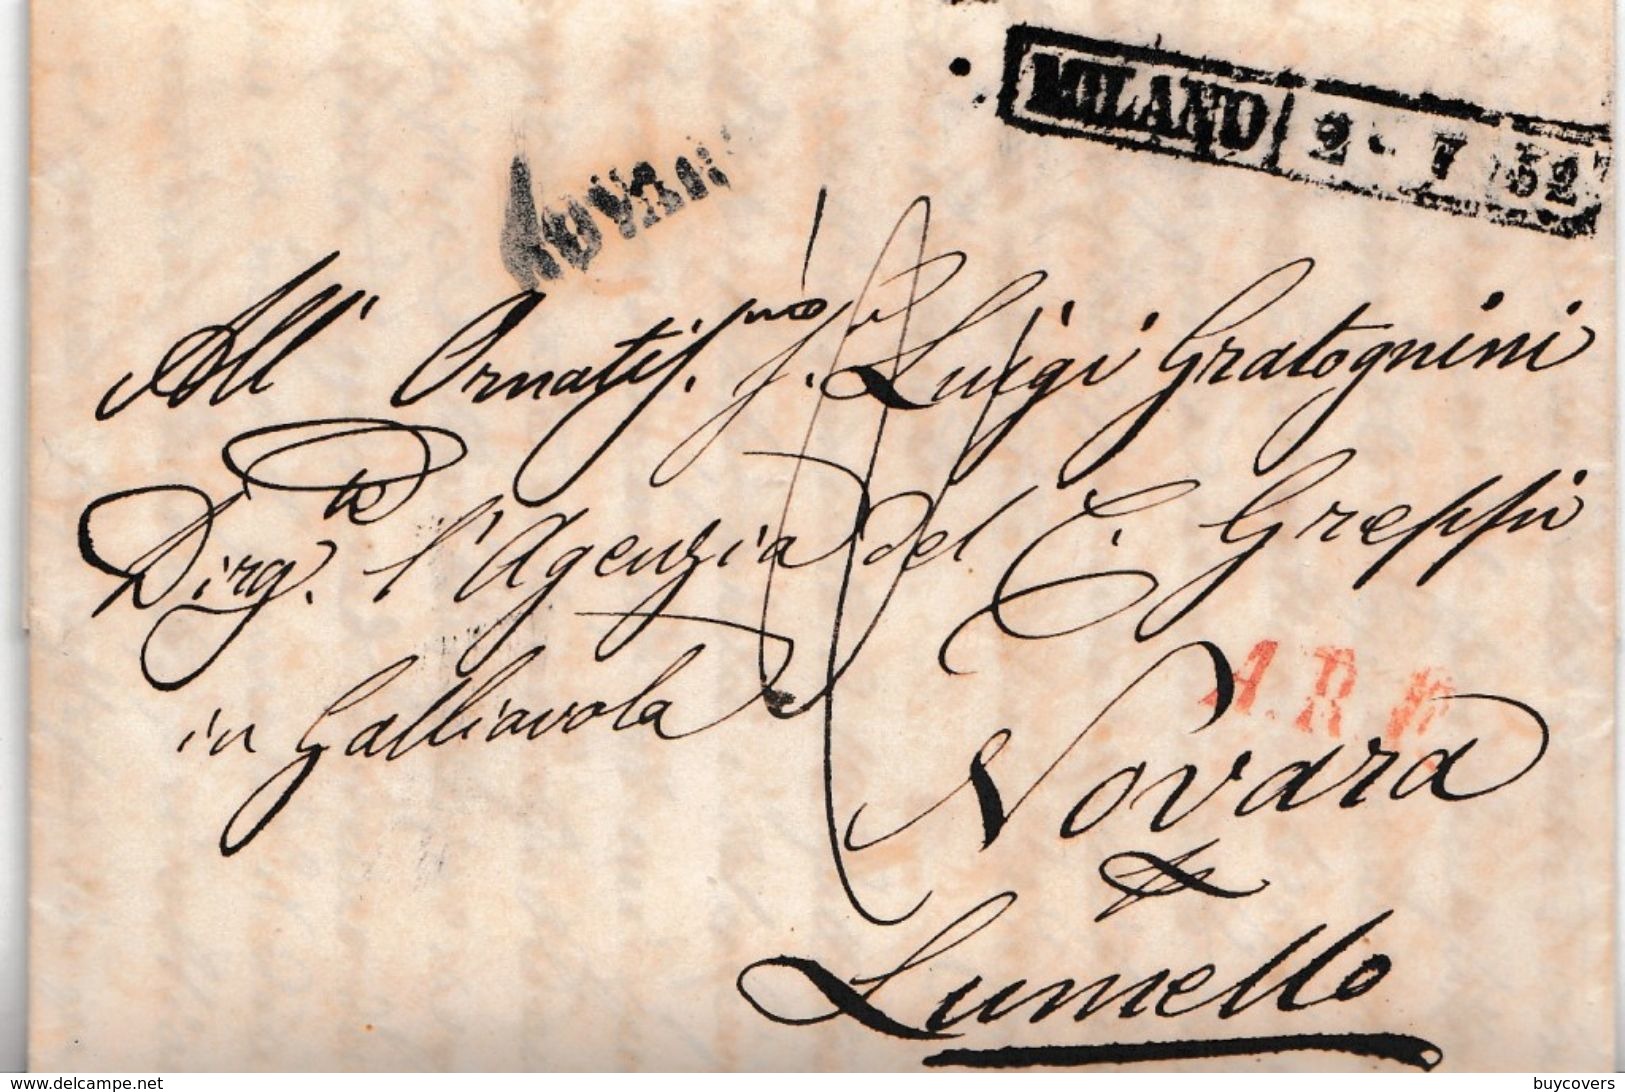 MILANO 2 · 7 52
All' Ornatis.mo S.r Luigi Gratognini
Dirg.te l'Agenzia del C. Greppi
in Galliavola
A.R.
Novara
p
Lumello
www.delcampe.net
buycovers